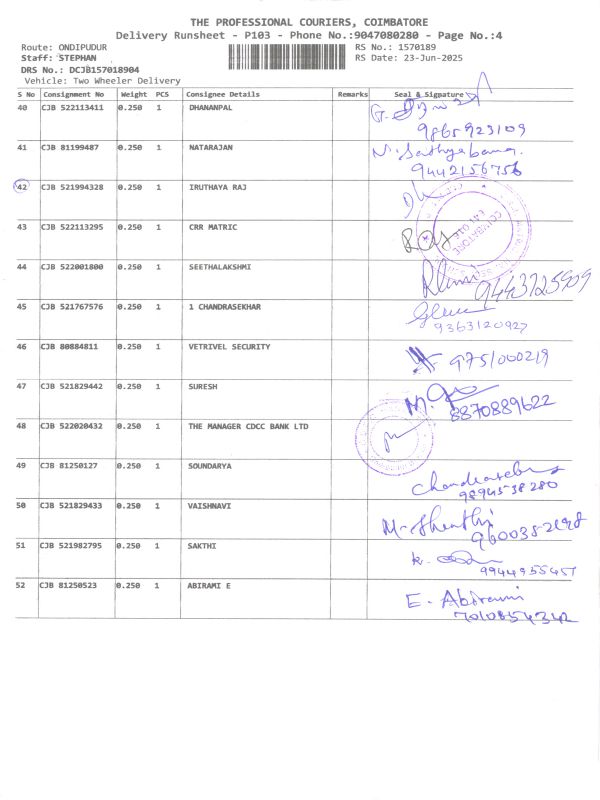 THE PROFESSIONAL COURIERS, COIMBATORE
Delivery Runsheet - P103 - Phone No.:9047080280 - Page No.:4
Route: ONDIPUDUR RS No.: 1570189
Staff: STEPHAN RS Date: 23-Jun-2025
DRS No.: DCJB157018904
Vehicle: Two Wheeler Delivery
S No Consignment No Weight PCS Consignee Details Remarks Seal & Signature
40 CJB 522113411 0.250 1 DHANANPAL
9865923109
41 CJB 81199487 0.250 1 NATARAJAN N. Sathyabama.
9442156756
42 CJB 521994328 0.250 1 IRUTHAYA RAJ
43 CJB 522113295 0.250 1 CRR MATRIC
COIMBATORE
44 CJB 522001800 0.250 1 SEETHALAKSHMI
9443725909
45 CJB 521767576 0.250 1 1 CHANDRASEKHAR
9363120927
46 CJB 80884811 0.250 1 VETRIVEL SECURITY 9751000219
47 CJB 521829442 0.250 1 SURESH
8870889622
48 CJB 522020432 0.250 1 THE MANAGER CDCC BANK LTD
49 CJB 81250127 0.250 1 SOUNDARYA
9894538280
50 CJB 521829433 0.250 1 VAISHNAVI M. Shanthi
51 CJB 521982795 0.250 1 SAKTHI
9944955457
52 CJB 81250523 0.250 1 ABIRAMI E E. Abirami
7010854342